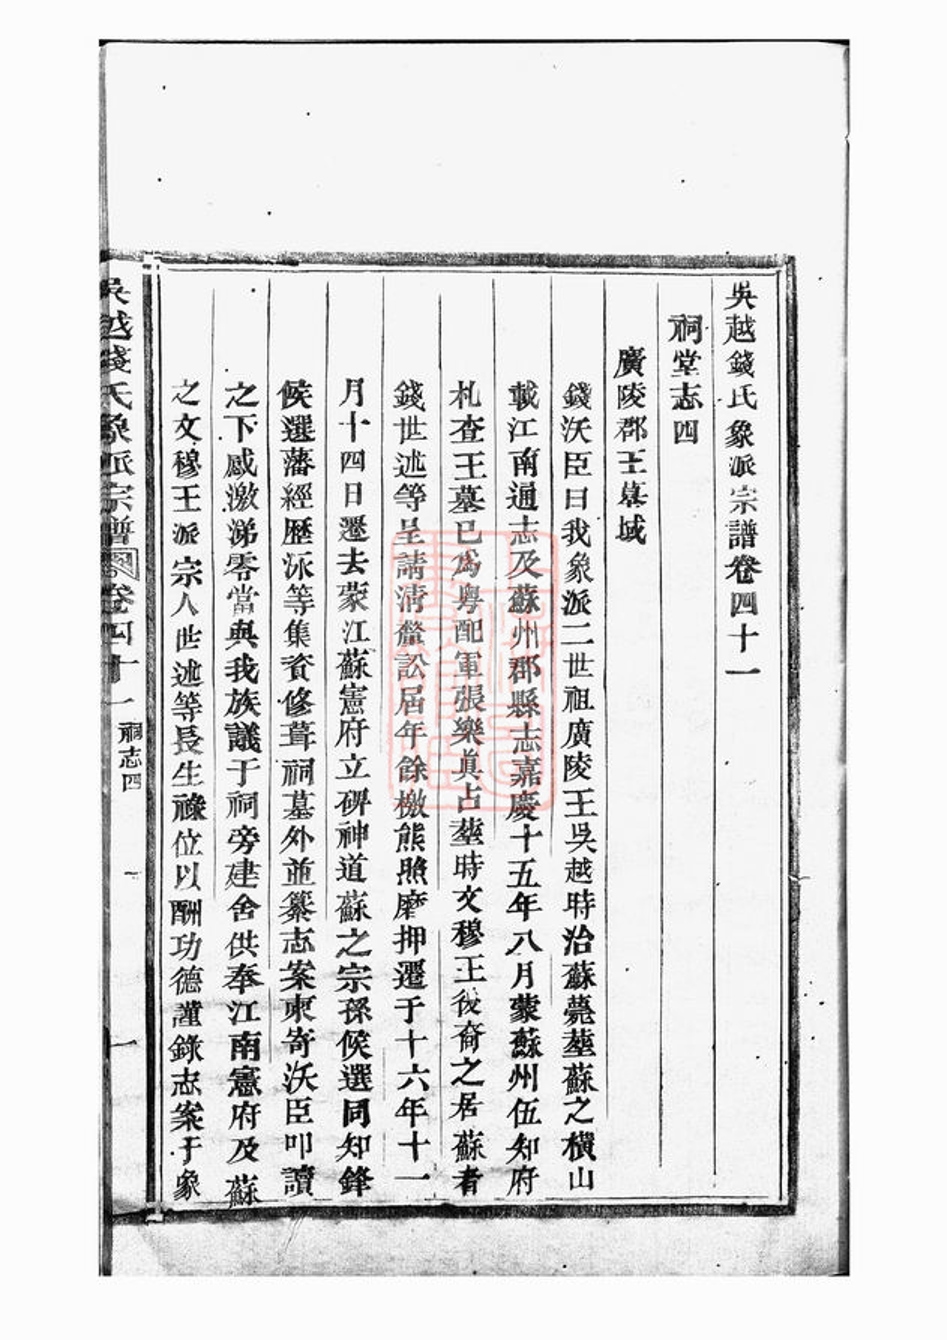 吳越錢氏象派宗譜卷四十一
祠堂志四
廣陵郡王墓域
錢沃臣曰我象派二世祖廣陵王吳越時治蘇薨塟蘇之橫山
載江南通志及蘇州郡縣志嘉慶十五年八月蒙蘇州伍知府
札查王墓已爲粵配軍張樂眞占塟時文穆王後裔之居蘇者
錢世述等呈請清釐訟屆年餘檄熊照磨押遷于十六年十一
月十四日遷去蒙江蘇憲府立碑神道蘇之宗孫候選同知鋒
候選藩經歷泳等集資修葺祠墓外並纂志案柬寄沃臣叩讀
之下感激涕零當與我族議于祠旁建舍供奉江南憲府及蘇
之文穆王派宗人世述等長生祿位以酬功德謹錄志案于象
吳越錢氏象派宗譜 卷四十一 祠志四 一